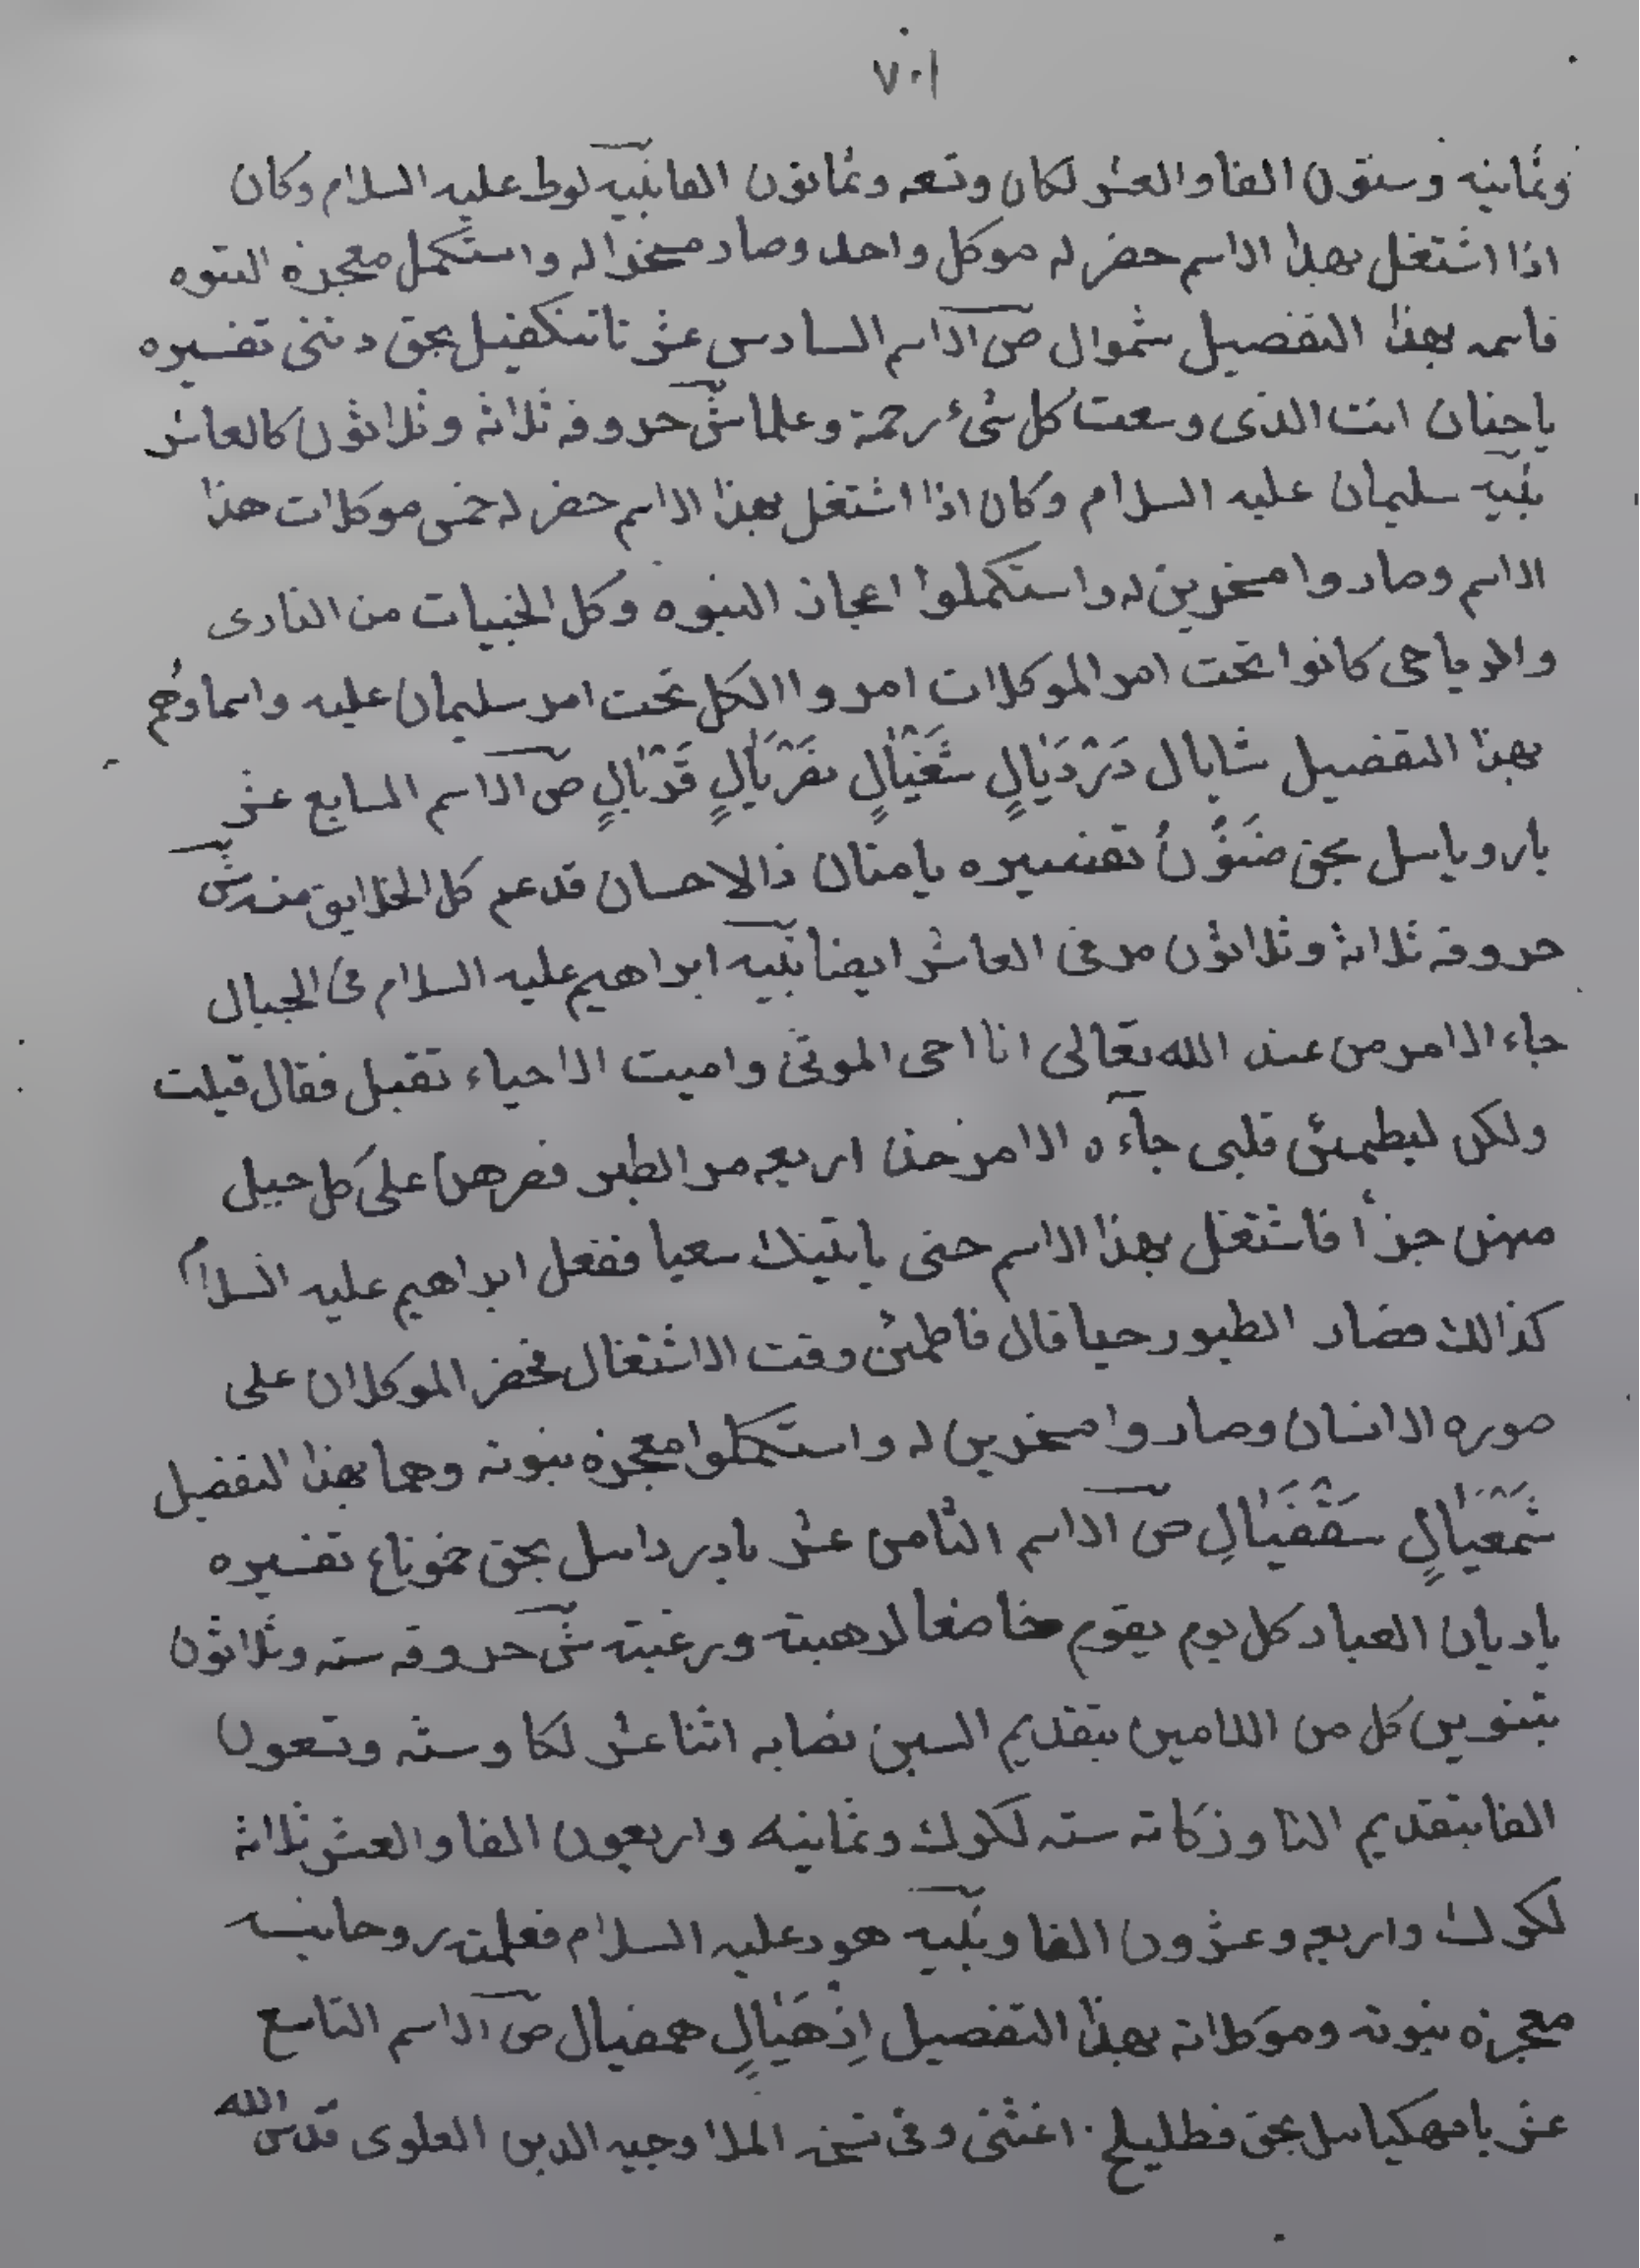 ٧٠١
وثمانيه وستون الفا والعشر لكان وتسعه وثمانون الفا نبيه لوط عليه السلام وكان
اذا اشتغل بهذا الاسم حضر له موكل واحد وصار مسخرا له واستكمل معجزه النبوه
فاسمه بهذا التفصيل شموال ص الاسم السادس عشر تفسيره
يا حنان انت الذى وسعت كل شئ رحمة وعلما ش حروفه ثلاثه وثلاثون كالعاشر
نبيه سليمان عليه السلام وكان اذا اشتغل بهذا الاسم حضر له خمس موكلات هذا
الاسم وصاروا مسخرين له واستكملوا اعجاز النبوه وكل الخبيات من النارى
والرياحى كانوا تحت امر الموكلات امروا الكل تحت امر سليمان عليه واسماوهم
بهذا التفصيل شايال دَرْدَيَالٍ شَغْيَالٍ نفَرْيَالٍ قَدْيَالٍ ص الاسم السابع عشر
يا رويايىل بحق تفسيره يا منان ذالاحسان قد عم كل الخلايق منه ش
حروفه ثلاثه وثلاثون مر فى العاشر ايضا نبيه ابراهيم عليه السلام فى الجبال
جاء الامر من عند الله تعالى انا احى الموتى واميت الاحياء تقبل فقال قبلت
ولكن ليطمئن قلبى جآءه الامر خذ اربعه من الطير فصرهن على كل جبل
منهن جزأ فاشتغل بهذا الاسم حتى ياتينك سعيا ففعل ابراهيم عليه السلام
كذالك فصار الطيور حيا قال فاطمئن وقت الاشتغال فحضر الموكلان على
صوره الانسان وصاروا مسخرين له واستكملوا معجزه نبوته وهما بهذا التفصيل
شَمْعَيَالٍ سَقْفَيَالٍ ص الاسم الثامن عشر يا دردايىل بحق تفسيره
يا ديان العباد كل يوم يقوم خاضعا لرهبته ورغبته ش حروفه سته وثلاثون
بتنوين كل من اللامين بتقديم السين نصابه اثنا عشر لكا وسته وتسعون
الفا بتقديم التا وزكاته سته لكوك وثمانيه واربعون الفا والعشر ثلاثه
لكوك واربعه وعشرون الفا ونبيه هود عليه السلام فعلمته روحانيه
معجزه نبوته وموكلاته بهذا التفصيل اِذْهَيَالٍ همفيال ص الاسم التاسع
عشر يا مهكيايىل بحق اغثنى وفى نسخه الملا وجيه الدين العلوى قدس الله